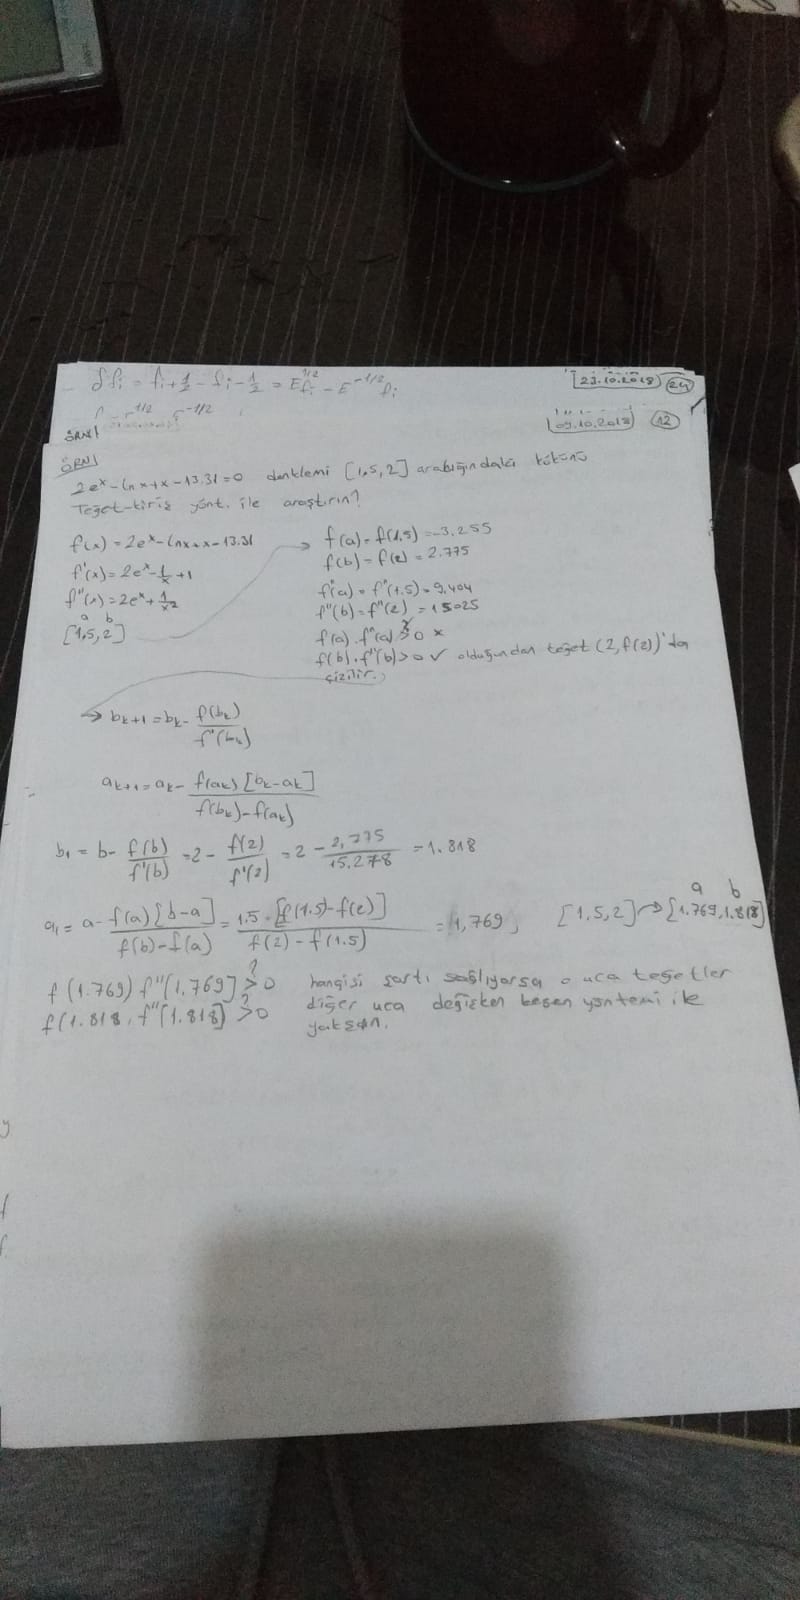 δfi = fi+1/2 - fi-1/2 = E^1/2 fi - E^-1/2 fi
[23.10.2018] 24
[09.10.2018] 12
ÖRN/
ÖRN/
2e^x - lnx + x - 13.31 = 0 denklemi [1,5,2] aralığındaki kökünü
Teğet-kiriş yönt. ile araştırın?
f(x) = 2e^x - lnx + x - 13.31
f'(x) = 2e^x - 1/x + 1
f''(x) = 2e^x + 1/x^2
a b
[1,5,2]
f(a) = f(1,5) = -3,255
f(b) = f(2) = 2.775
f''(a) = f''(1.5) = 9.404
f''(b) = f''(2) = 15025
f(a) . f''(a) > 0 x
f(b) . f''(b) > 0 ✓ olduğundan teğet (2, f(2))'da
çizilir.
→ bk+1 = bk - f(bk)/f'(bk)
ak+1 = ak - f(ak)[bk - ak]/f(bk) - f(ak)
b1 = b - f(b)/f'(b) = 2 - f(2)/f'(2) = 2 - 2,775/15,278 = 1.818
a1 = a - f(a)[b-a]/f(b)-f(a) = 1.5 - [f(1.5)-f(2)]/f(2) - f(1.5) = 1,769,
a b
[1,5,2] → [1.769, 1.818]
f(1.769) f''[1,769] >? 0 hangisi şartı sağlıyorsa o uca teğetler
f(1.818 . f''[1.818] >? 0 diğer uca değişken kesen yöntemi ile